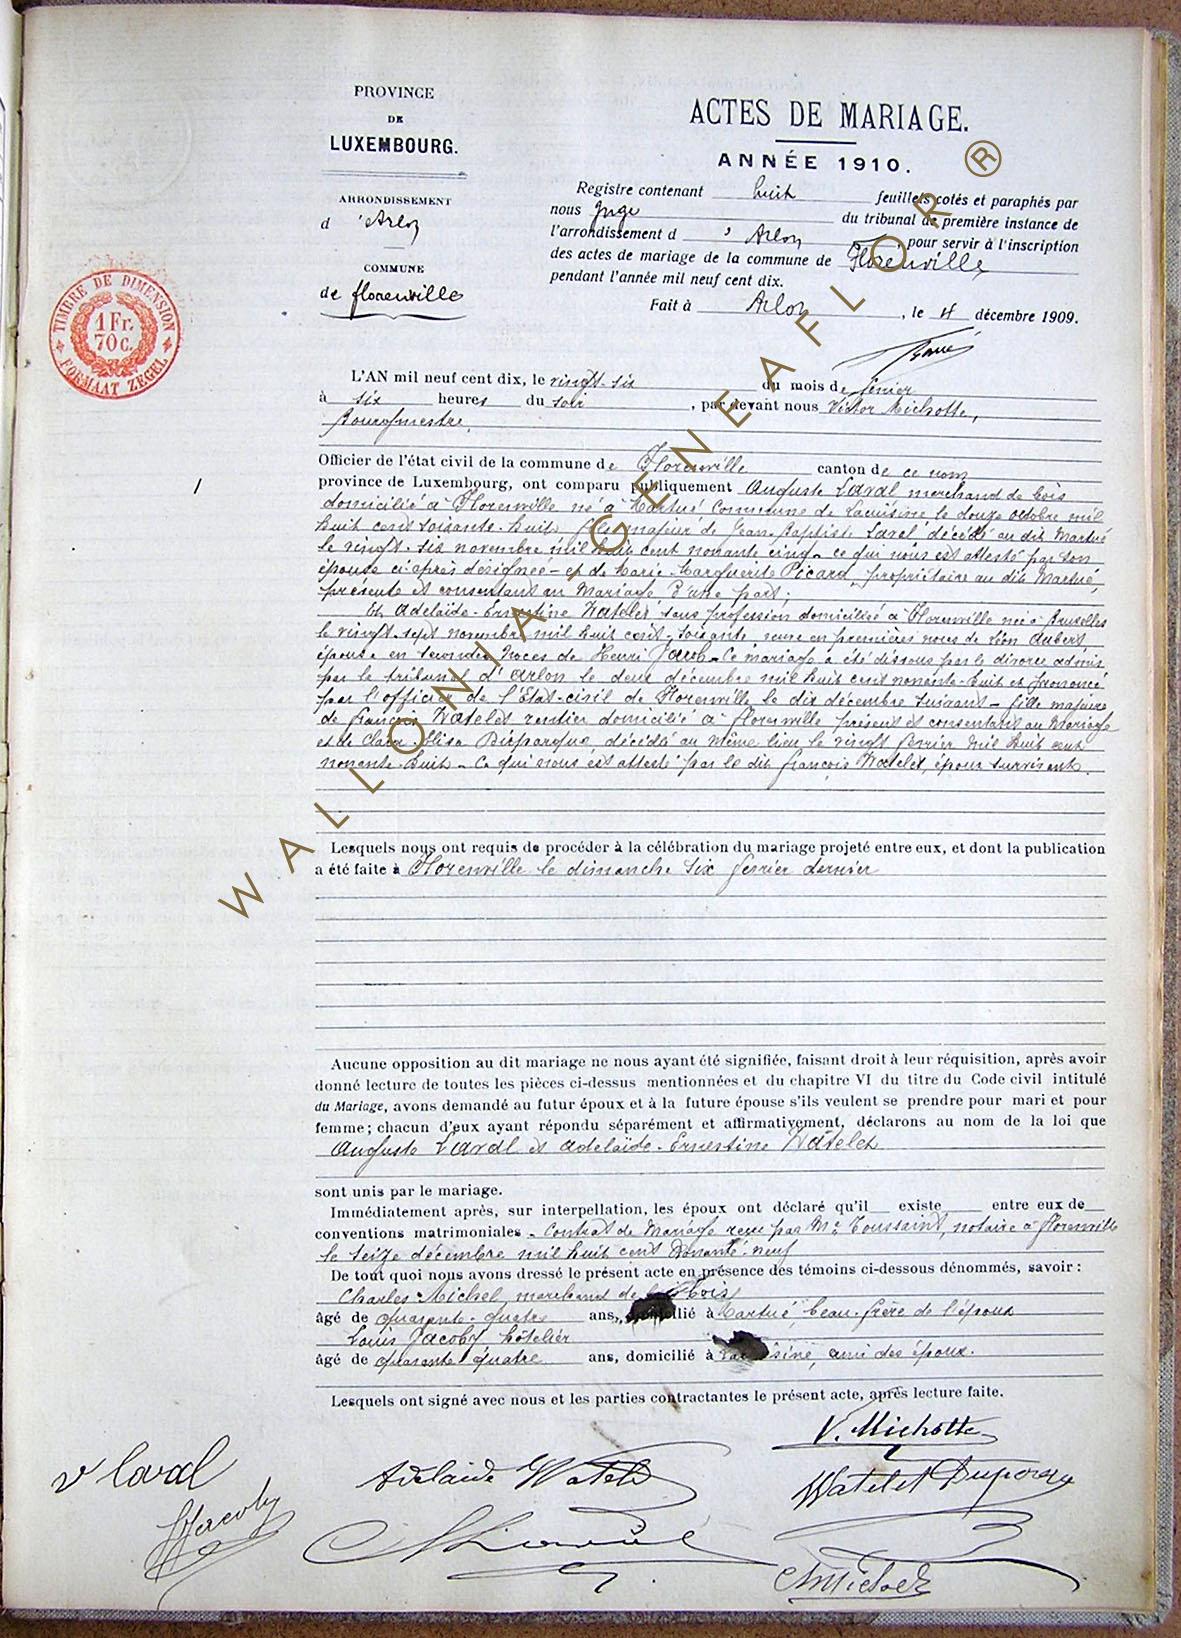 PROVINCE
DE
LUXEMBOURG.
ARRONDISSEMENT
d 'Arlon
COMMUNE
de florenville
TIMBRE DE DIMENSION
1 Fr.
70 c.
FORMAAT ZEGEL
ACTES DE MARIAGE.
ANNÉE 1910.
Registre contenant huit feuillets cotés et paraphés par
nous Juge du tribunal de première instance de
l'arrondissement d 'Arlon, pour servir à l'inscription
des actes de mariage de la commune de Florenville
pendant l'année mil neuf cent dix.
Fait à Arlon, le 4 décembre 1909.
L'AN mil neuf cent dix, le vingt-six du mois de février
à six heures du soir, par devant nous Victor Michotte,
Bourgmestre,
Officier de l'état civil de la commune de Florenville canton de ce nom
1
province de Luxembourg, ont comparu publiquement Auguste Laval marchand de bois
domicilié à Florenville né à Martué Commune de Lacuisine le douze octobre mil
huit cent soixante-huit, fils majeur de Jean Baptiste Laval décédé au dit Martué
le vingt-six novembre mil huit cent nonante cinq - ce qui nous est attesté par son
épouse ci-après désignée - et de Marie-Marguerite Picard, propriétaire au dit Martué,
présente et consentant au Mariage d'une part;
Et Adelaïde-Ernestine Watelet sans profession domiciliée à Florenville née à Bruxelles
le vingt-sept novembre mil huit cent-soixante veuve en premières noces de Léon Aubert
épouse en secondes Noces de Henri Jacob - Ce mariage a été dissous par le divorce admis
par le tribunal d'Arlon le deux décembre mil huit cent nonante-huit et prononcé
par l'officier de l'Etat-civil de Florenville le dix décembre suivant - fille majeure
de françois Watelet rentier domicilié à florenville présent et consentant au Mariage
et de Clara-Elisa décédée au même lieu le vingt février mil huit cent
nonante-huit - Ce qui nous est attesté par le dit françois Watelet, époux survivant.
Lesquels nous ont requis de procéder à la célébration du mariage projeté entre eux, et dont la publication
a été faite à Florenville le dimanche six février dernier
Aucune opposition au dit mariage ne nous ayant été signifiée, faisant droit à leur réquisition, après avoir
donné lecture de toutes les pièces ci-dessus mentionnées et du chapitre VI du titre du Code civil intitulé
du Mariage, avons demandé au futur époux et à la future épouse s'ils veulent se prendre pour mari et pour
femme; chacun d'eux ayant répondu séparément et affirmativement, déclarons au nom de la loi que
Auguste Laval et Adelaïde-Ernestine Watelet
sont unis par le mariage.
Immédiatement après, sur interpellation, les époux ont déclaré qu'il existe entre eux de
conventions matrimoniales - Contrat de Mariage reçu par Me Toussaint, notaire à florenville
le seize décembre mil huit cent nonante-neuf
De tout quoi nous avons dressé le présent acte en présence des témoins ci-dessous dénommés, savoir :
Charles Michel, marchand de bois
âgé de quarante-quatre ans, domicilié à Martué, beau-frère de l'époux
Louis Jacoby hôtelier
âgé de quarante quatre ans, domicilié à Lacuisine, ami des époux.
Lesquels ont signé avec nous et les parties contractantes le présent acte, après lecture faite.
V. Michotte
v Laval
Adelaïde Watelet
Watelet
Jacoby
Ch Michel
WALLONIA-GENEAFLOR ®